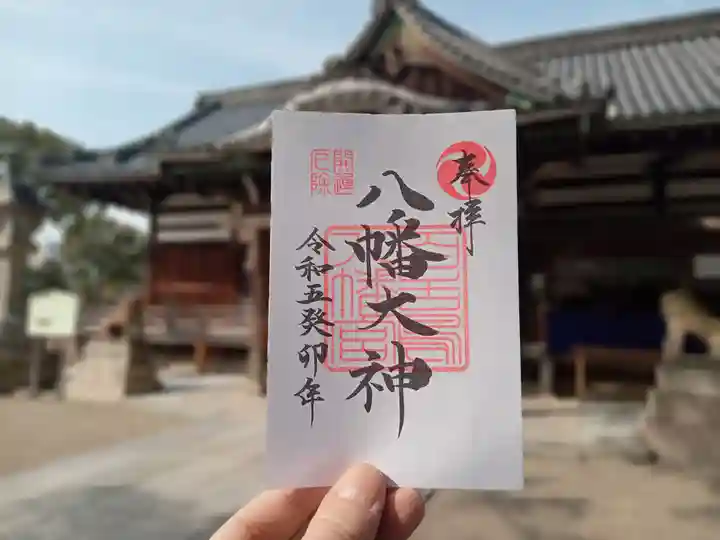 奉拝
八幡大神
開運
厄除
令和五癸卯年